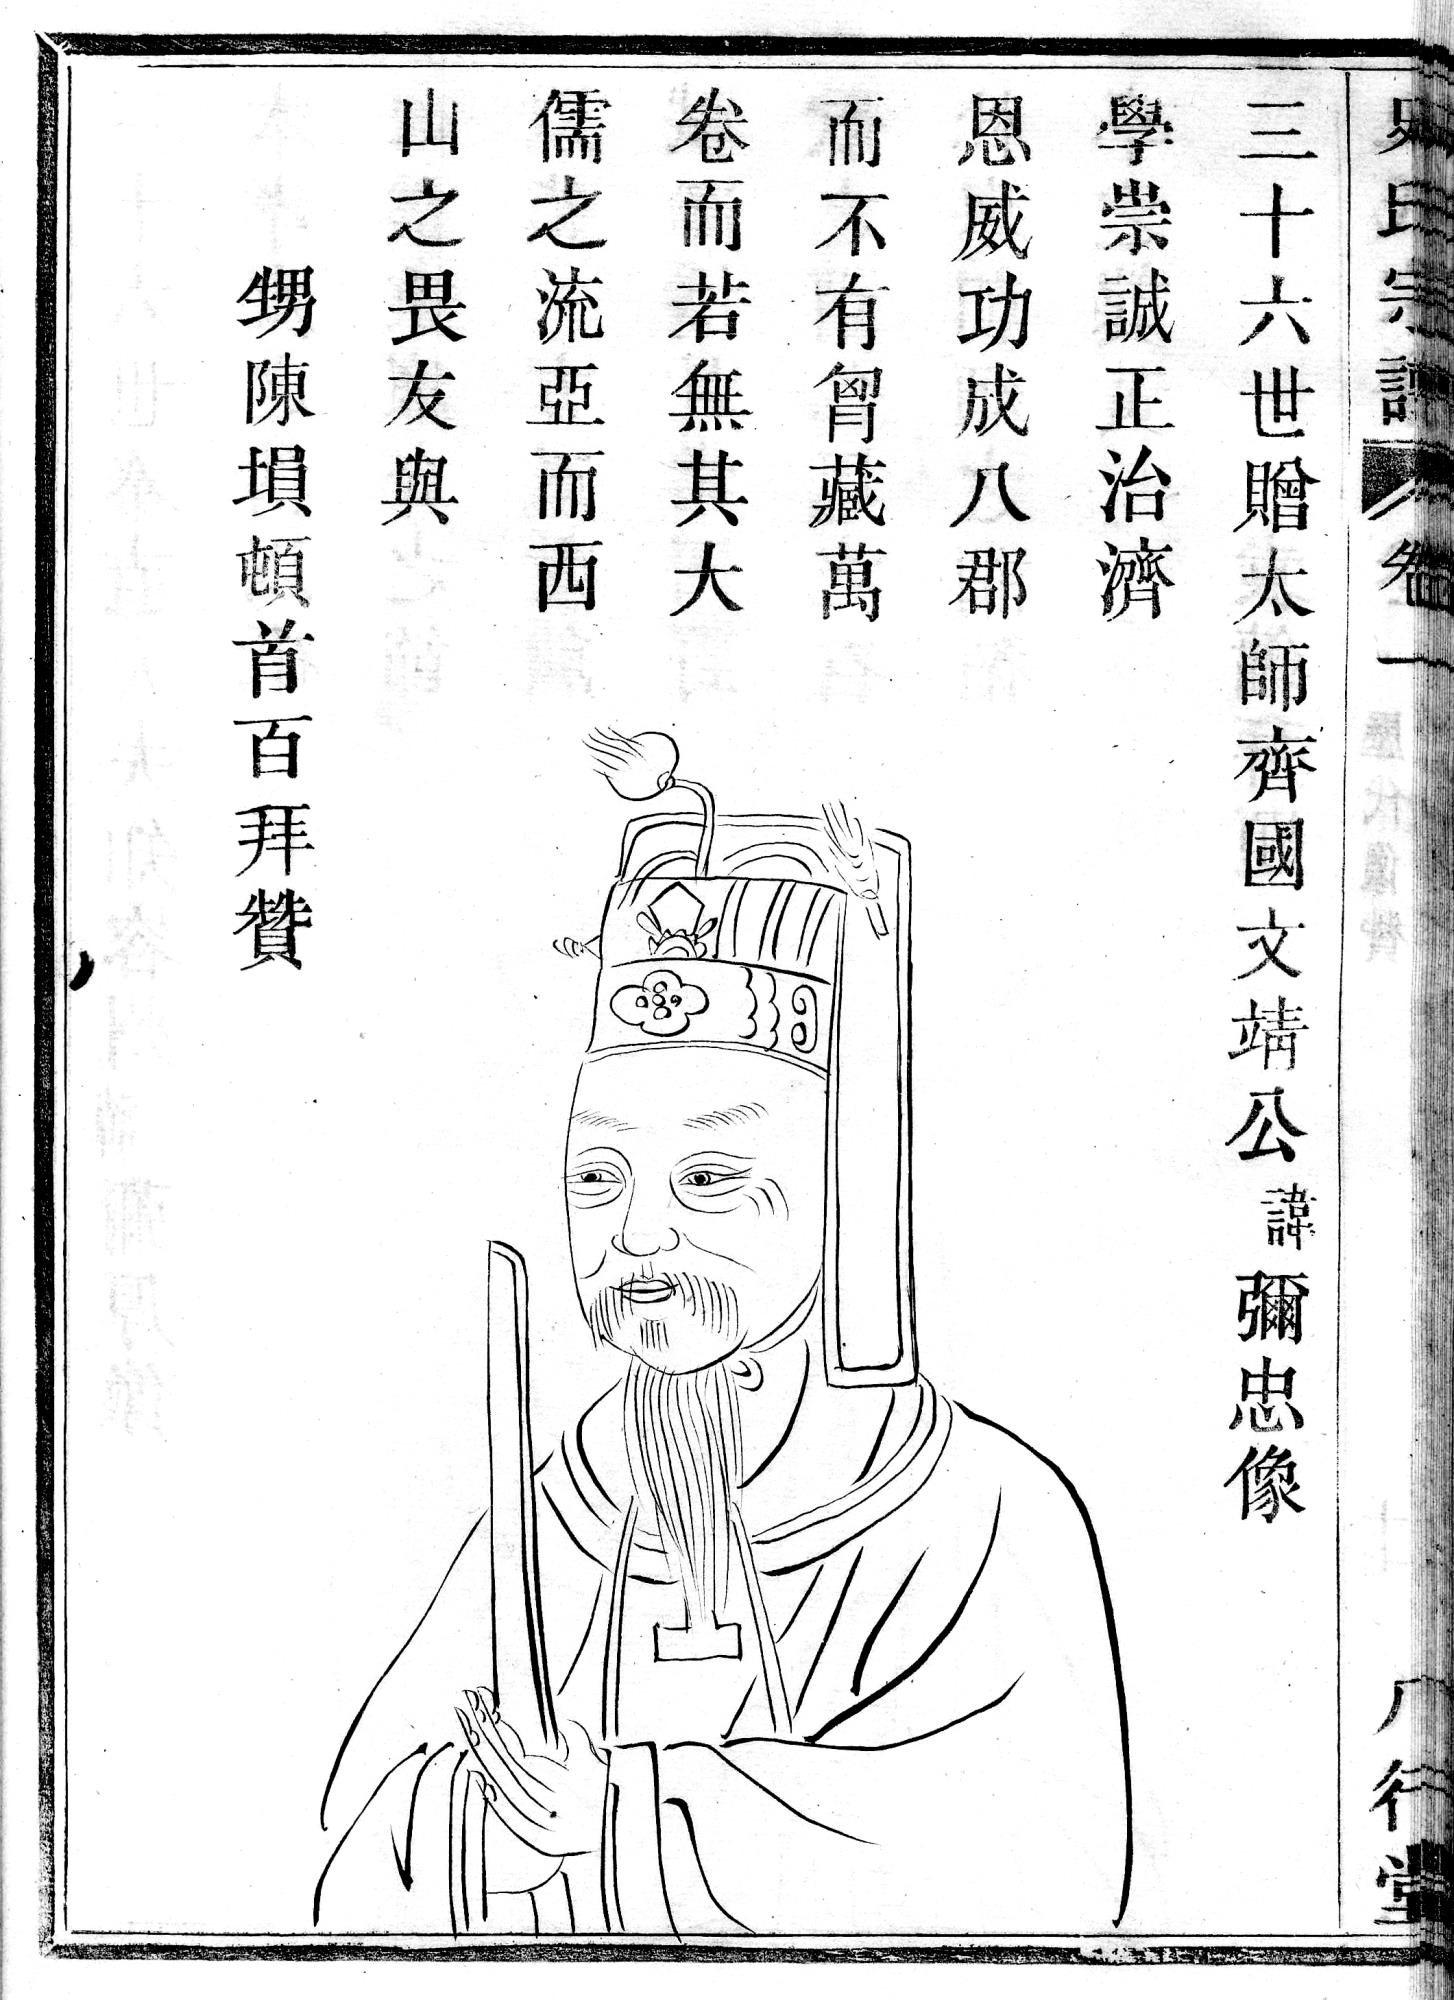 史氏宗譜 卷一 歷代像贊 八行堂
三十六世贈太師齊國文靖公諱彌忠像
學崇誠正治濟
恩威功成八郡
而不有胷藏萬
卷而若無其大
儒之流亞而西
山之畏友與
甥陳塤頓首百拜贊